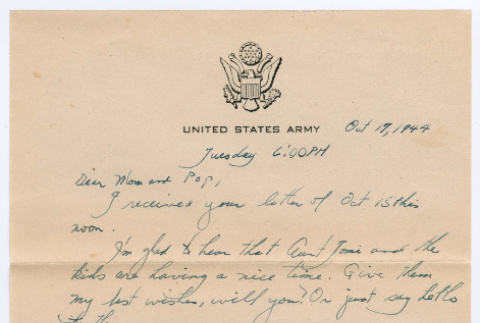 UNITED STATES ARMY
Oct 17, 1944
Tuesday 6:00PM
Dear Mom and Pop,
I received your letter of Oct 15 this
noon.
I'm glad to hear that Aunt Tomi and the
kids are having a nice time. Give them
my best wishes, will you? Or just say hello